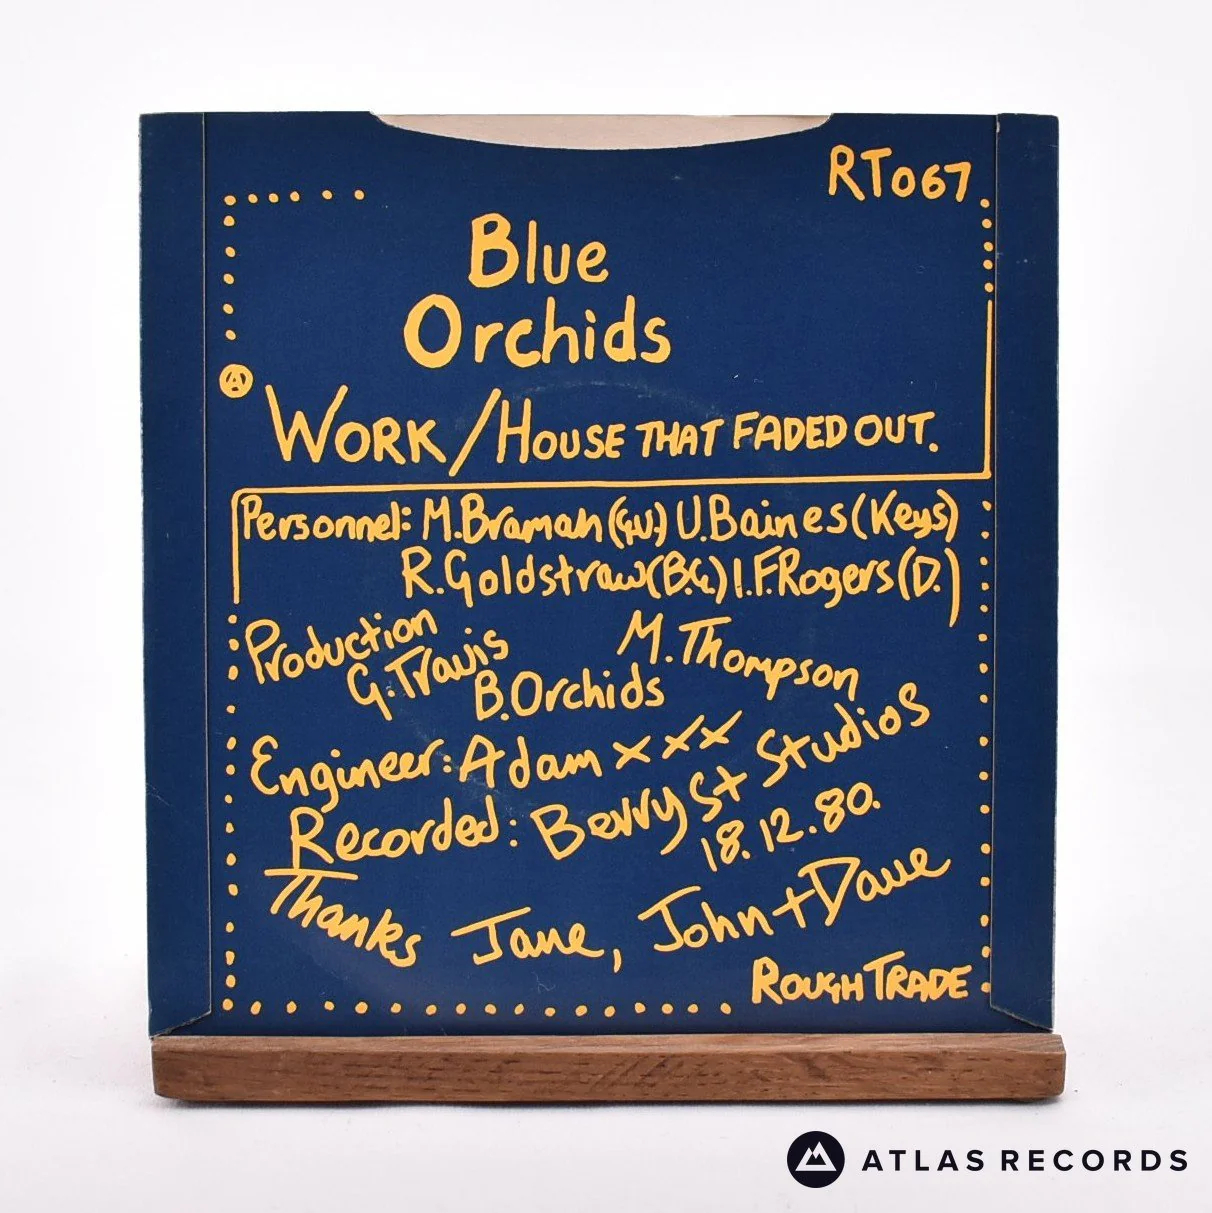 RT067
Blue
Orchids
WORK/HOUSE THAT FADED OUT.
Personnel: M.Bramah (G,V.) U.Baines (Keys)
R.Goldstraw (B.G.) I.F.Rogers (D.)
Production
G.Travis
M.Thompson
B.Orchids
Engineer: Adam x x x
Recorded: Berry St Studios
18.12.80.
Thanks Jane, John + Dave
ROUGH TRADE
ATLAS RECORDS